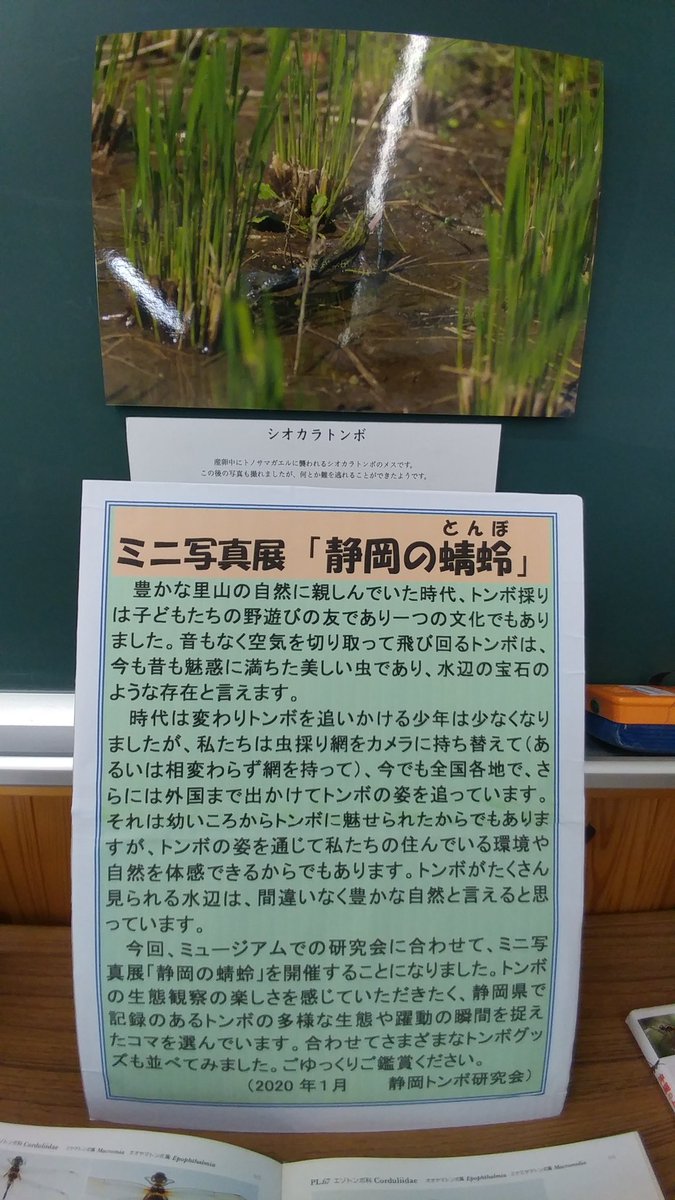 シオカラトンボ
産卵中にトノサマガエルに襲われるシオカラトンボのメスです。
この後の写真も撮れましたが、何とか難を逃れることができたようです。
とんぼ
ミニ写真展「静岡の蜻蛉」
豊かな里山の自然に親しんでいた時代、トンボ採り
は子どもたちの野遊びの友であり一つの文化でもあり
ました。音もなく空気を切り取って飛び回るトンボは、
今も昔も魅惑に満ちた美しい虫であり、水辺の宝石の
ような存在と言えます。
時代は変わりトンボを追いかける少年は少なくなり
ましたが、私たちは虫採り網をカメラに持ち替えて(あ
るいは相変わらず網を持って)、今でも全国各地で、さ
らには外国まで出かけてトンボの姿を追っています。
それは幼いころからトンボに魅せられたからでもありま
すが、トンボの姿を通じて私たちの住んでいる環境や
自然を体感できるからでもあります。トンボがたくさん
見られる水辺は、間違いなく豊かな自然と言えると思
っています。
今回、ミュージアムでの研究会に合わせて、ミニ写
真展「静岡の蜻蛉」を開催することになりました。トンボ
の生態観察の楽しさを感じていただきたく、静岡県で
記録のあるトンボの多様な生態や躍動の瞬間を捉え
たコマを選んでいます。合わせてさまざまなトンボグッ
ズも並べてみました。ごゆっくりご鑑賞ください。
(2020年1月 静岡トンボ研究会)
エゾトンボ科 Corduliidae Macromia Epophthalmia
PL.67 エゾトンボ科 Corduliidae オオヤマトンボ属 Epophthalmia コヤマトンボ属 Macromia